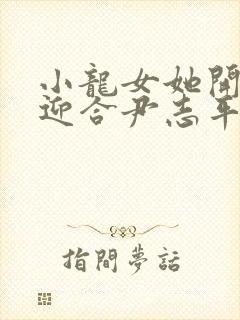 小龍女她開
迎合尹志平
指間夢話